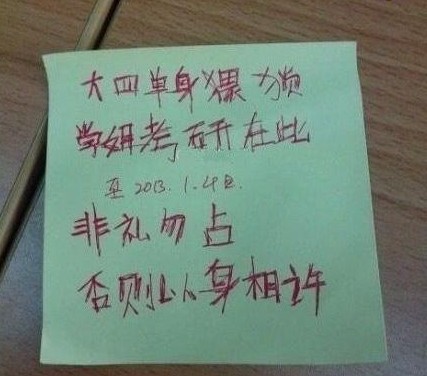 大四单身猥琐
学姐考研在此
至2013.1.4日.
非礼勿占
否则以身相许